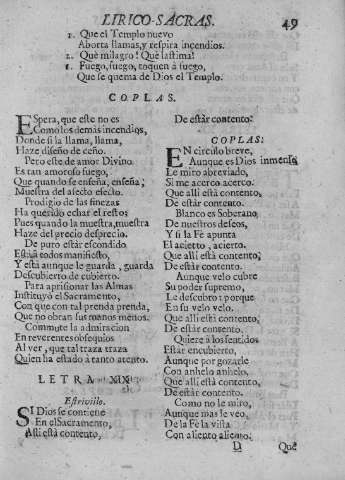 LIRICO-SACRAS. 49
1. Que el Templo nuevo
Aborta llamas, y respira incendios.
2. Què milagro! Què lastima!
1. Fuego, fuego, toquen à fuego,
Que se quema de Dios el Templo.
COPLAS.
ESpera, que este no es
Como los demàs incendios,
Donde si la llama, llama,
Haze diseño de ceño.
Pero este de amor Divino
Es tan amoroso fuego,
Que quando se enseña, enseña,
Muestra del afecto efecto.
Prodigio de las finezas
Ha querido echar el resto;
Pues quando la muestra, muestra
Haze del precio desprecio.
De puro estàr escondido
Està à todos manifiesto,
Y està aunque le guarda, guarda
Descubierto de cubierto.
Para aprisionar las Almas
Instituyò el Sacramento,
Con que con tal prenda prenda,
Que no obran sus manos menos.
Commute la admiracion
En reverentes obsequios
Al ver, que tal traza traza
Quien ha estado à tanto atento.
LETRA XIX
Estrivillo.
SI Dios se contiene
En el Sacramento,
Alli està contento,
De estàr contento.
COPLAS:
EN circulo breve,
Aunque es Dios inmenso
Le miro abreviado,
Si me acerco acerco.
Que allì està contento,
De estàr contento.
Blanco es Soberano
De nuestros deseos,
Y si la Fè apunta
El acierto, acierto.
Que allì està contento,
De estàr contento.
Aunque velo cubre
Su poder supremo,
Le descubro: porque
En su velo velo.
Que allì està contento,
De estàr contento.
Quiere à los sentidos
Estàr encubierto,
Aunque por gozarle
Con anhelo anhelo.
Que allì està contento,
De estàr contento.
Como no le miro,
Aunque mas le veo,
De la Fè la vista
Con aliento aliento.
D Que